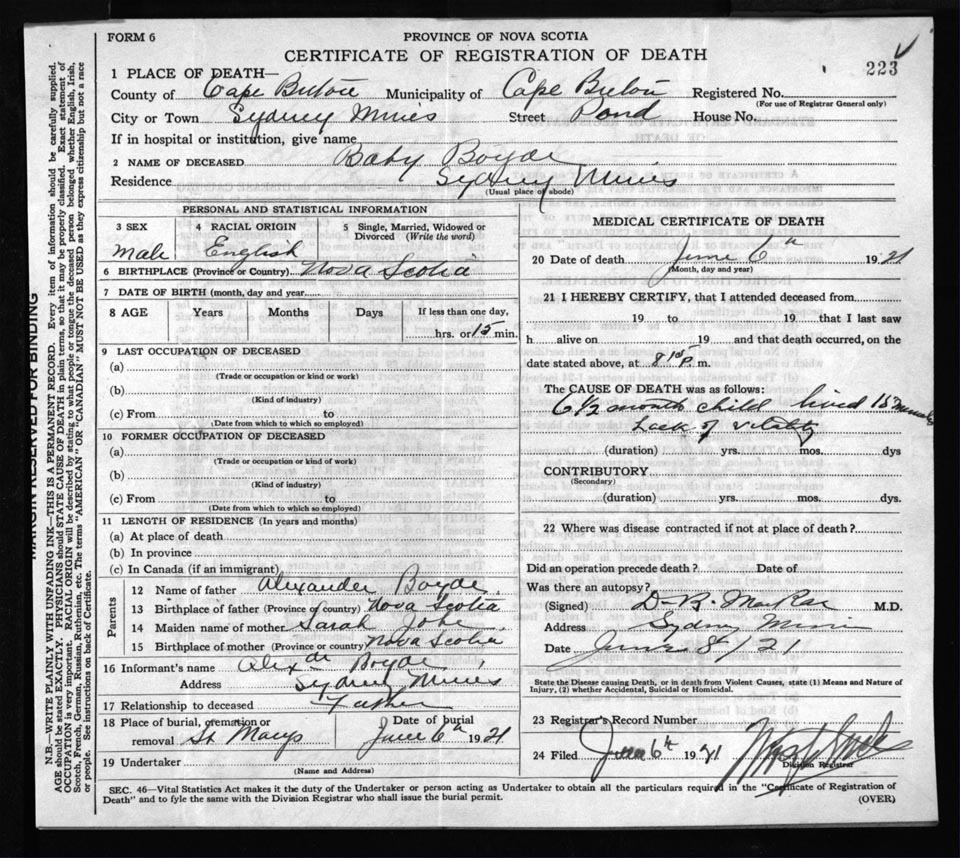 FORM 6
PROVINCE OF NOVA SCOTIA
CERTIFICATE OF REGISTRATION OF DEATH
223
1 PLACE OF DEATH—
County of Cape Breton Municipality of Cape Breton Registered No.
(For use of Registrar General only)
City or Town Sydney Mines Street Pond House No.
If in hospital or institution, give name
2 NAME OF DECEASED Baby Boyde
Residence Sydney Mines
(Usual place of abode)
PERSONAL AND STATISTICAL INFORMATION
3 SEX 4 RACIAL ORIGIN 5 Single, Married, Widowed or Divorced (Write the word)
Male English
6 BIRTHPLACE (Province or Country) Nova Scotia
7 DATE OF BIRTH (month, day and year
8 AGE Years Months Days If less than one day,
hrs. or 15 min.
9 LAST OCCUPATION OF DECEASED
(a)
(Trade or occupation or kind or work)
(b)
(Kind of industry)
(c) From to
(Date from which to which so employed)
10 FORMER OCCUPATION OF DECEASED
(a)
(Trade or occupation or kind of work)
(b)
(Kind of industry)
(c) From to
(Date from which to which so employed)
11 LENGTH OF RESIDENCE (In years and months)
(a) At place of death
(b) In province
(c) In Canada (if an immigrant)
Parents
12 Name of father Alexander Boyde
13 Birthplace of father (Province or country) Nova Scotia
14 Maiden name of mother Sarah
15 Birthplace of mother (Province or country) Nova Scotia
16 Informant's name Alexdr Boyde
Address Sydney Mines
17 Relationship to deceased Father
18 Place of burial, cremation or removal St Marys Date of burial June 6th 1921
19 Undertaker
(Name and Address)
MEDICAL CERTIFICATE OF DEATH
20 Date of death June 6th 1921
(Month, day and year)
21 I HEREBY CERTIFY, that I attended deceased from
19 to 19 that I last saw
h alive on 19 and that death occurred, on the
date stated above, at 8 P. m.
The CAUSE OF DEATH was as follows:
6 1/2 month child lived 15 minutes
Lack of vitality
(duration) yrs. mos. dys
CONTRIBUTORY
(Secondary)
(duration) yrs. mos. dys.
22 Where was disease contracted if not at place of death?
Did an operation precede death? Date of
Was there an autopsy?
(Signed) D. B. MacRae M.D.
Address Sydney Mines
Date June 8/21
State the Disease causing Death, or in death from Violent Causes, state (1) Means and Nature of
Injury, (2) whether Accidental, Suicidal or Homicidal.
23 Registrar's Record Number
24 Filed June 6th 1921
Division Registrar
SEC. 46—Vital Statistics Act makes it the duty of the Undertaker or person acting as Undertaker to obtain all the particulars required in the "Certificate of Registration of
Death" and to fyle the same with the Division Registrar who shall issue the burial permit.
(OVER)
MARGIN RESERVED FOR BINDING
N.B.—WRITE PLAINLY WITH UNFADING INK—THIS IS A PERMANENT RECORD. Every item of information should be carefully supplied.
AGE should be stated EXACTLY. PHYSICIANS should STATE CAUSE OF DEATH in plain terms, so that it may be properly classified. Exact statement of
OCCUPATION is very important. RACIAL ORIGIN will be described by stating to what people or tongue the deceased person belonged whether English, Irish,
Scotch, French, German, Russian, Ruthenian, etc. The terms "AMERICAN" OR "CANADIAN" MUST NOT BE USED as they express citizenship but not a race
or people. See instructions on back of Certificate.